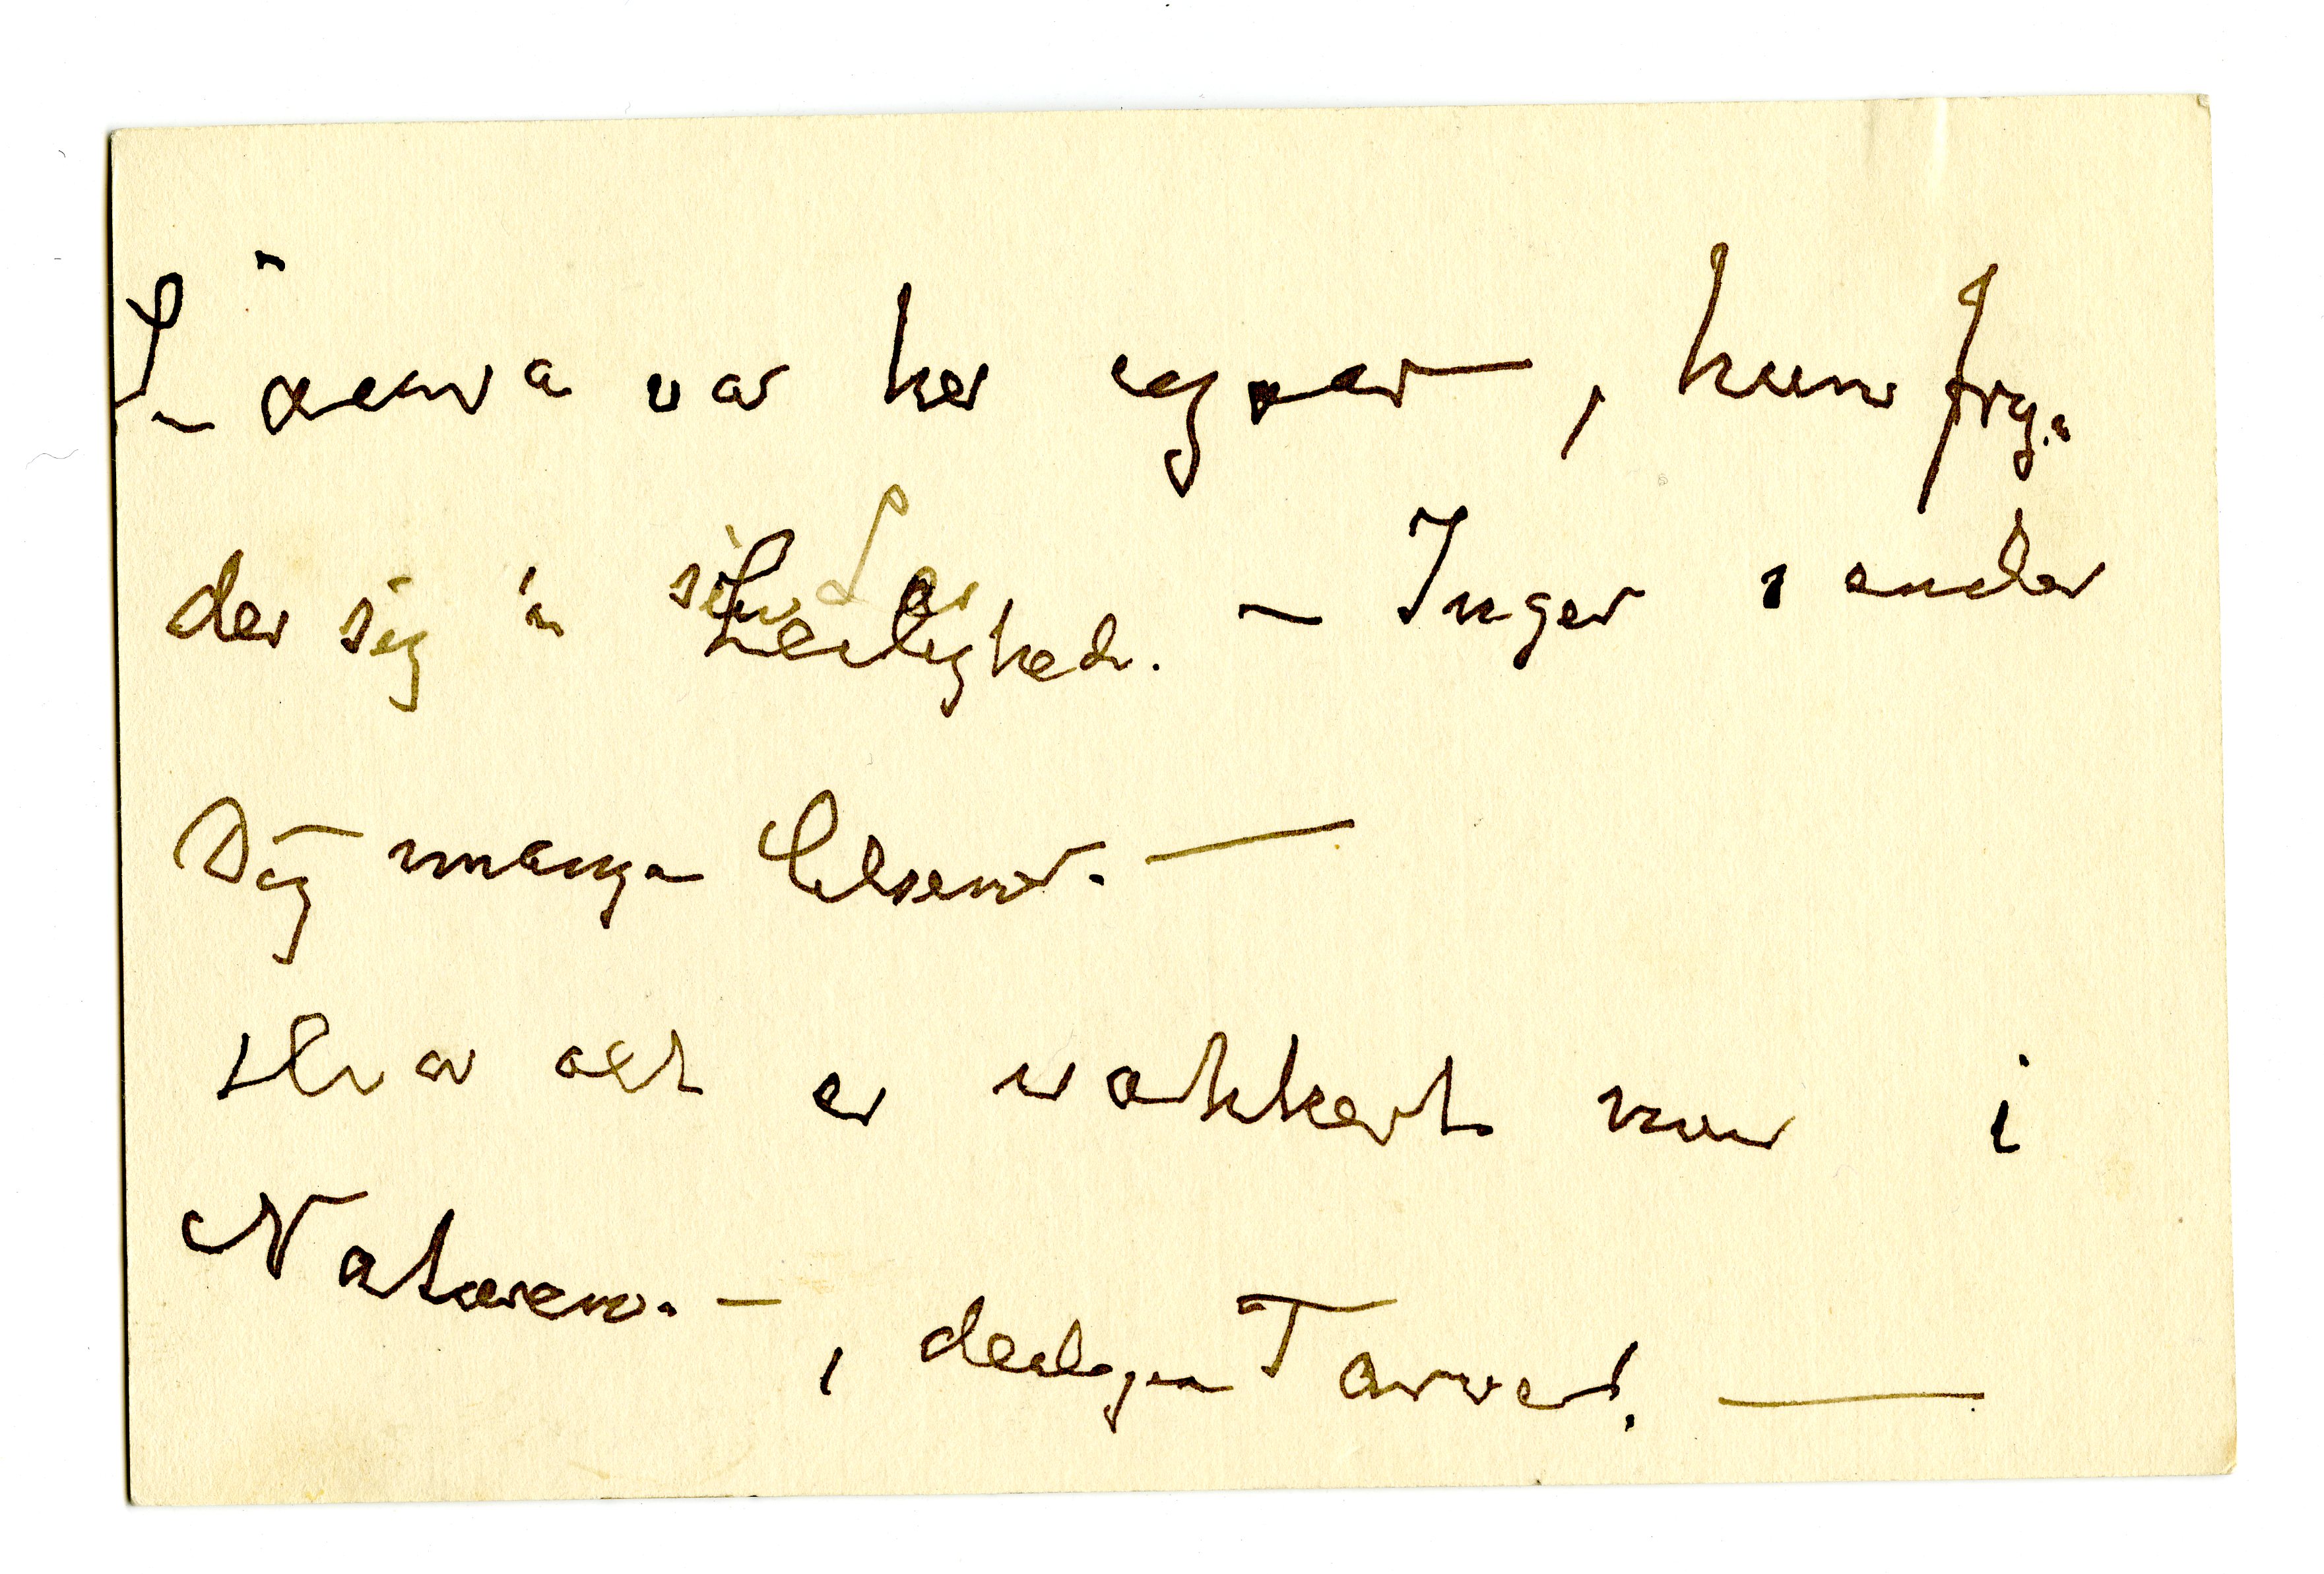 Laura var her igaar –, hun fry-
der sig i sin Leilighed. – Inger sender
Dig mange hilsener. —
Hvor alt er vakkert nu i
Naturen. –, deilige Farver. —